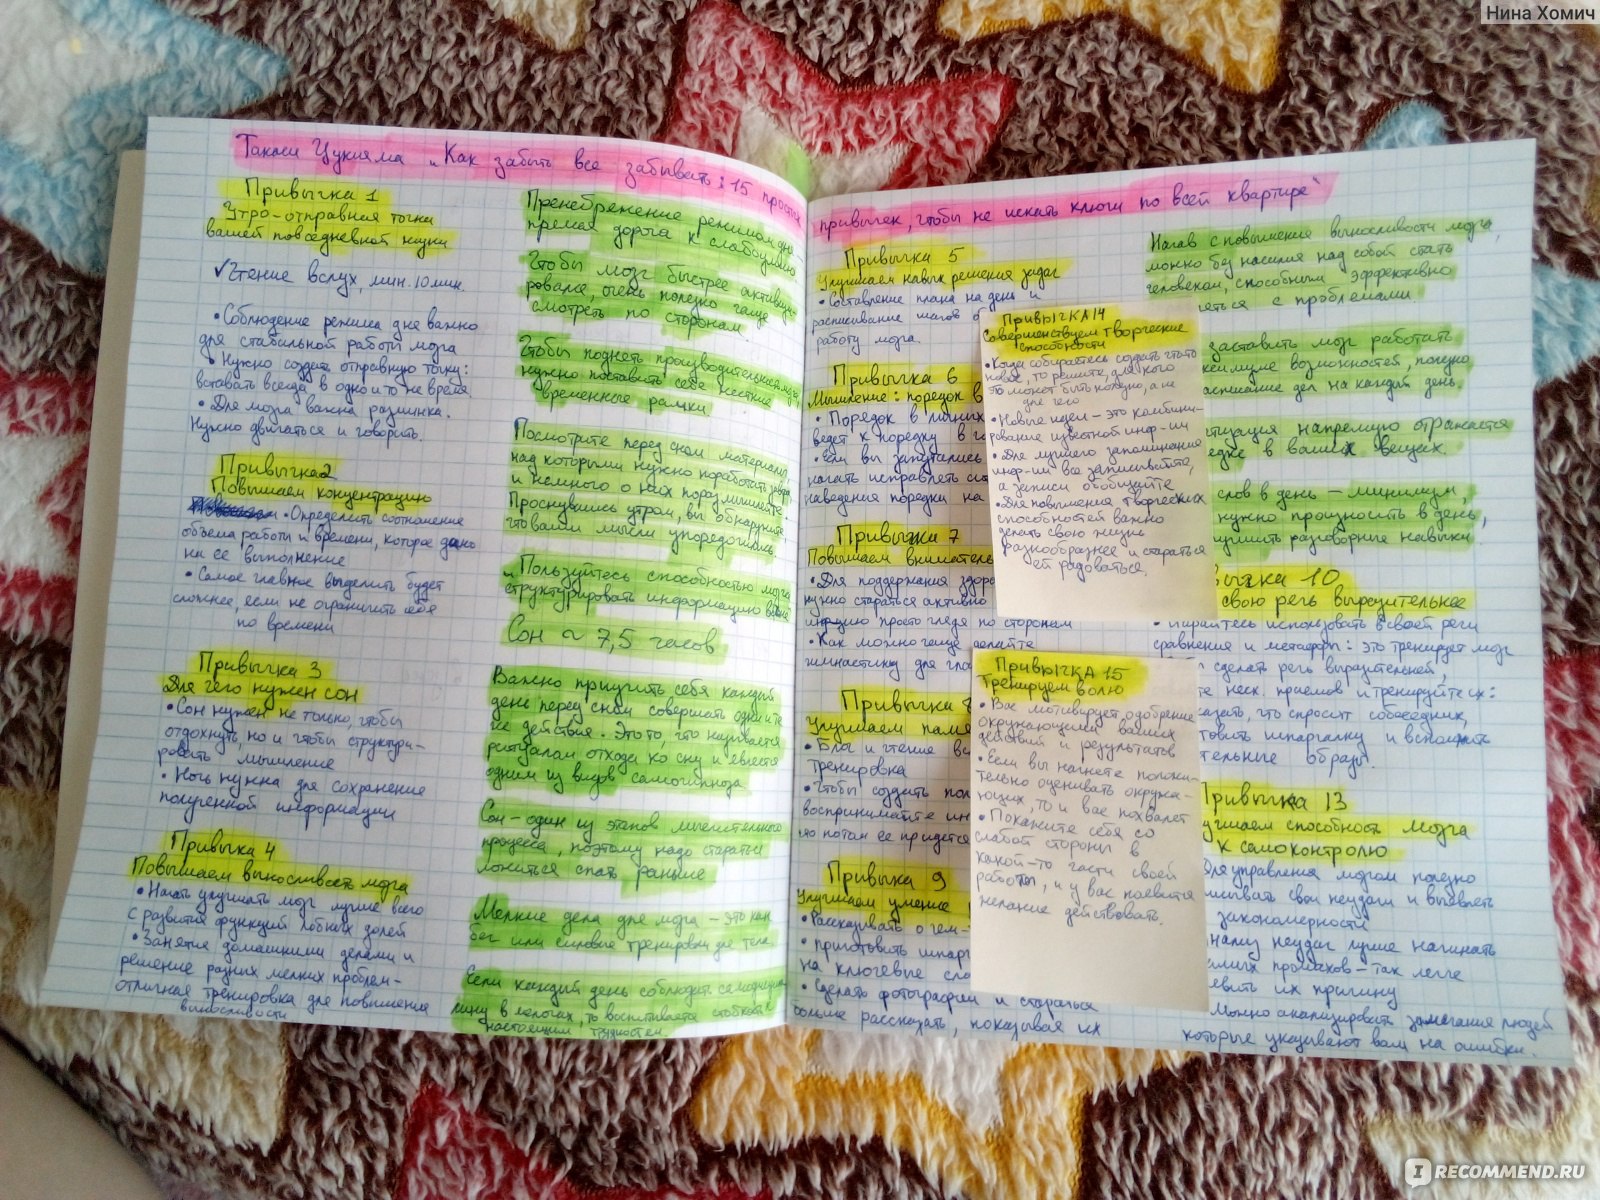 Нина Хомич
Такаси Цукияма „Как забыть все забывать: 15 простых
привычек, чтобы не искать ключи по всей квартире“
Привычка 1
Утро-отправная точка
вашей повседневной жизни
✓Чтение вслух, мин. 10 мин.
• Соблюдение режима дня важно
для стабильной работы мозга
• Нужно создать отправную точку:
вставать всегда в одно и то же время
• Для мозга важна разминка.
Нужно двигаться и говорить.
Привычка 2
Повышаем концентрацию
• Определить соотношение
объема работы и времени, которое дано
на ее выполнение
• Самое главное выделить будет
сложнее, если не ограничить себя
по времени
Привычка 3
Для чего нужен сон
• Сон нужен не только, чтобы
отдохнуть, но и чтобы структури-
ровать мышление
• Ночь нужна для сохранения
полученной информации
Привычка 4
Повышаем выносливость мозга
• Начать улучшать мозг лучше всего
с развития функций лобных долей
• Занятие домашними делами и
решение разных мелких проблем-
отличная тренировка для повышения
выносливости
Пренебрежение режимом дня –
прямая дорога к слабоумию
Чтобы мозг быстрее активизи-
ровался, очень полезно чаще
смотреть по сторонам
Чтобы поднять производительность
нужно поставить себе жесткие
временные рамки
Посмотрите перед сном материалы,
над которыми нужно поработать завтра
и немного о них поразмышляйте.
Проснувшись утром, вы обнаружите,
что ваши мысли упорядочились
Пользуйтесь способностью мозга
структурировать информацию во сне
Сон ~ 7,5 часов
Важно приучить себя каждый
день перед сном совершать одни и те
же действия. Это то, что называется
ритуалом отхода ко сну и является
одним из видов самогипноза
Сон-один из этапов мыслительного
процесса, поэтому надо стараться
ложиться спать раньше
Мелкие дела для мозга – это как
бег или силовые тренировки для тела
Если каждый день соблюдать самодисцип-
лину в мелочах, то воспитывается стойкость к
настоящим трудностям
Привычка 5
Улучшаем навык решения задач
• Составление плана на день и
расписывание шагов
работу мозга.
Привычка 6
Мышление: порядок в
• Порядок в личных
ведет к порядку в
• Если вы запутались
начать исправлять
наведения порядка на
Привычка 7
Повышаем внимательн
• Для поддержания здоро
нужно стараться активно
просто глядя по сторонам
• Как можно чаще делайте
гимнастику для глаз
Привычка 8
Улучшаем памя
• Блог и чтение
тренировка
• Чтобы создать пол
воспринимайте ин
но потом ее придется
Привычка 9
Улучшаем умение
• Рассказывать о чем-
• приготовить шпарг
на ключевые сло
• Сделать фотографии и стараться
больше рассказать, показывая их
Привычка 14
Совершенствуем творческие
способности
• Когда собираетесь создать что-то
новое, то решите, для кого
это может быть нужно, а не
для чего
• Новые идеи – это комбини-
рование известной инф-ии
• Для лучшего запоминания
инф-ии все записывайте,
а записи обобщайте
• Для повышения творческих
способностей важно
делать свою жизнь
разнообразнее и стараться
ей радоваться.
Привычка 15
Тренируем волю
• Вас мотивирует одобрение
окружающими ваших
действий и результатов
• Если вы начнете положи-
тельно оценивать окружа-
ющих, то и вас похвалят
• Покажите себя со
слабой стороны в
какой-то части своей
работы, и у вас появится
желание действовать.
Начав с повышения выносливости мозга,
можно без насилия над собой стать
человеком, способным эффективно
яться с проблемами.
заставить мозг работать
ксимуме возможностей, полезно
асписание дел на каждый день.
туация напрямую отражается
ядке в ваших вещах.
слов в день – минимум,
нужно произносить в день,
учшить разговорные навыки
вычка 10
свою речь выразительнее
• Старайтесь использовать в своей речи
сравнения и метафоры: это тренирует мозг
сделать речь выразительней,
те неск. приемов и тренируйте их:
казать, что спросит собеседник,
товить шпаргалку и вспомнить
тельные образы.
Привычка 13
учшаем способность мозга
к самоконтролю
Для управления мозгом полезно
свои неудачи и выявлять
закономерности
нализ неудач лучше начинать
промахов – так легче
их причину
Можно анализировать замечания людей
которые указывают вам на ошибки.
IRECOMMEND.RU